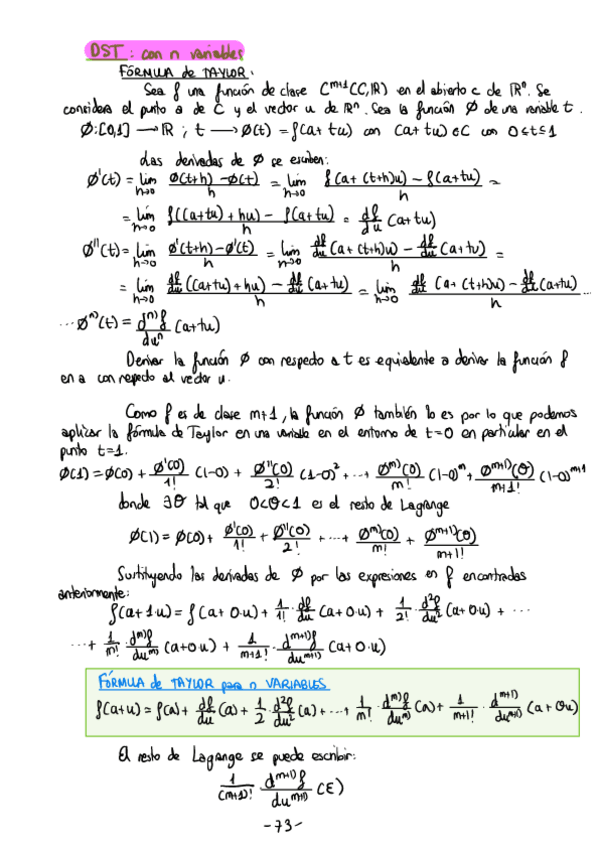 DST: con n variables
FÓRMULA de TAYLOR:
Sea f una función de clase C^{m+1}(C,ℝ) en el abierto c de ℝⁿ. Se
considera el punto a de C y el vector u de ℝⁿ. Sea la función Ø de una variable t.
Ø:[0,1] → ℝ ; t → Ø(t) = f(a+tu) con (a+tu)∈C con 0≤t≤1
Las derivadas de Ø se escriben:
Ø'(t) = lim_{h→0} (Ø(t+h)-Ø(t))/h = lim_{h→0} (f(a+(t+h)u) - f(a+tu))/h =
= lim_{h→0} (f((a+tu)+hu) - f(a+tu))/h = df/du (a+tu)
Ø''(t) = lim_{h→0} (Ø'(t+h)-Ø'(t))/h = lim_{h→0} (df/du (a+(t+h)u) - df/du (a+tu))/h =
= lim_{h→0} (df/du ((a+tu)+hu) - df/du (a+tu))/h = lim_{h→0} (df/du (a+(t+h)u) - df/du (a+tu))/h ...
... Ø^{n)}(t) = d^{n)}f/duⁿ (a+tu)
Derivar la función Ø con respecto a t es equivalente a derivar la función f
en a con respecto al vector u.
Como f es de clase m+1, la función Ø también lo es por lo que podemos
aplicar la fórmula de Taylor en una variable en el entorno de t=0 en particular en el
punto t=1.
Ø(1) = Ø(0) + Ø'(0)/1! (1-0) + Ø''(0)/2! (1-0)² + ... + Ø^{m)}(0)/m! (1-0)^m + Ø^{m+1)}(θ)/m+1! (1-0)^{m+1}
donde ∃θ tal que 0<θ<1 es el resto de Lagrange
Ø(1) = Ø(0) + Ø'(0)/1! + Ø''(0)/2! + ... + Ø^{m)}(0)/m! + Ø^{m+1)}(θ)/m+1!
Sustituyendo las derivadas de Ø por las expresiones en f encontradas
anteriormente:
f(a+1·u) = f(a+0·u) + 1/1! · df/du (a+0·u) + 1/2! · d²f/du² (a+0u) + ...
... + 1/m! · d^{m)}f/du^{m)} (a+0·u) + 1/m+1! · d^{m+1)}f/du^{m+1)} (a+θ·u)
FÓRMULA de TAYLOR para n VARIABLES
f(a+u) = f(a) + df/du (a) + 1/2 · d²f/du² (a) + ... + 1/m! · d^{m)}f/du^{m)} (a) + 1/m+1! · d^{m+1)}/du^{m+1)} (a+θu)
El resto de Lagrange se puede escribir:
1/(m+1)! · d^{m+1)}f/du^{m+1)} (E)
-73-